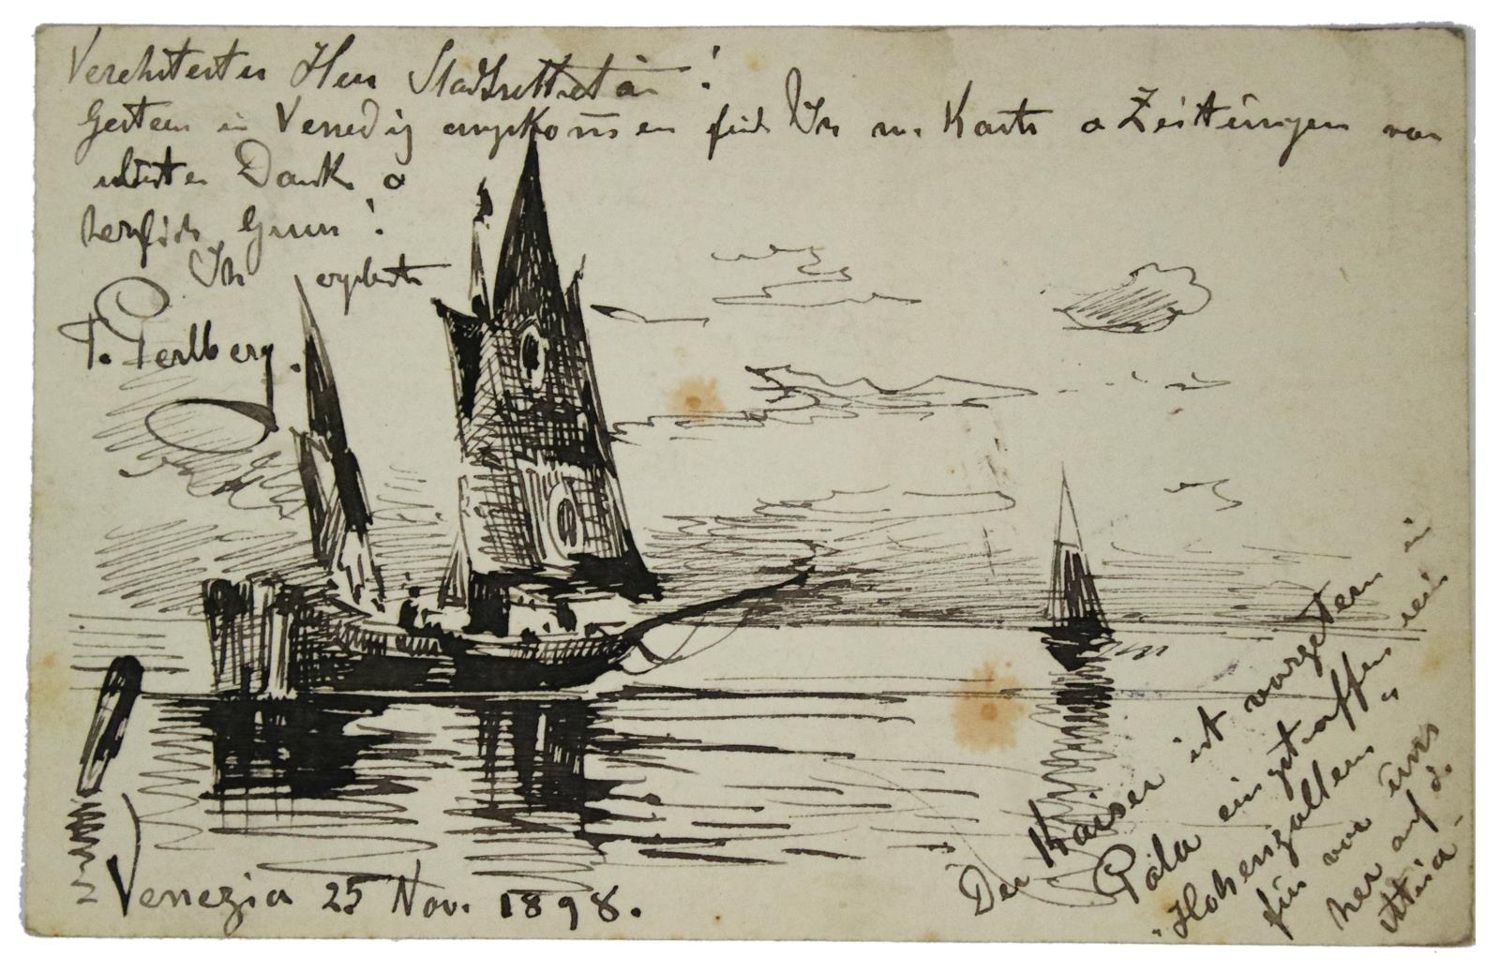 Verehrtester Herr Stadtsekretär!
Gestern in Venedig angekommen finde Ihre w. Karte & Zeitungen vor
Dank &
herzlichen Gruss!
Ihr ergebenster
P. Perlberg.
Venezia 25 Nov. 1898.
Der Kaiser ist vorgestern in
Pola eingetroffen, sein
"Hohenzollern"
fuhr vor uns
her auf d.